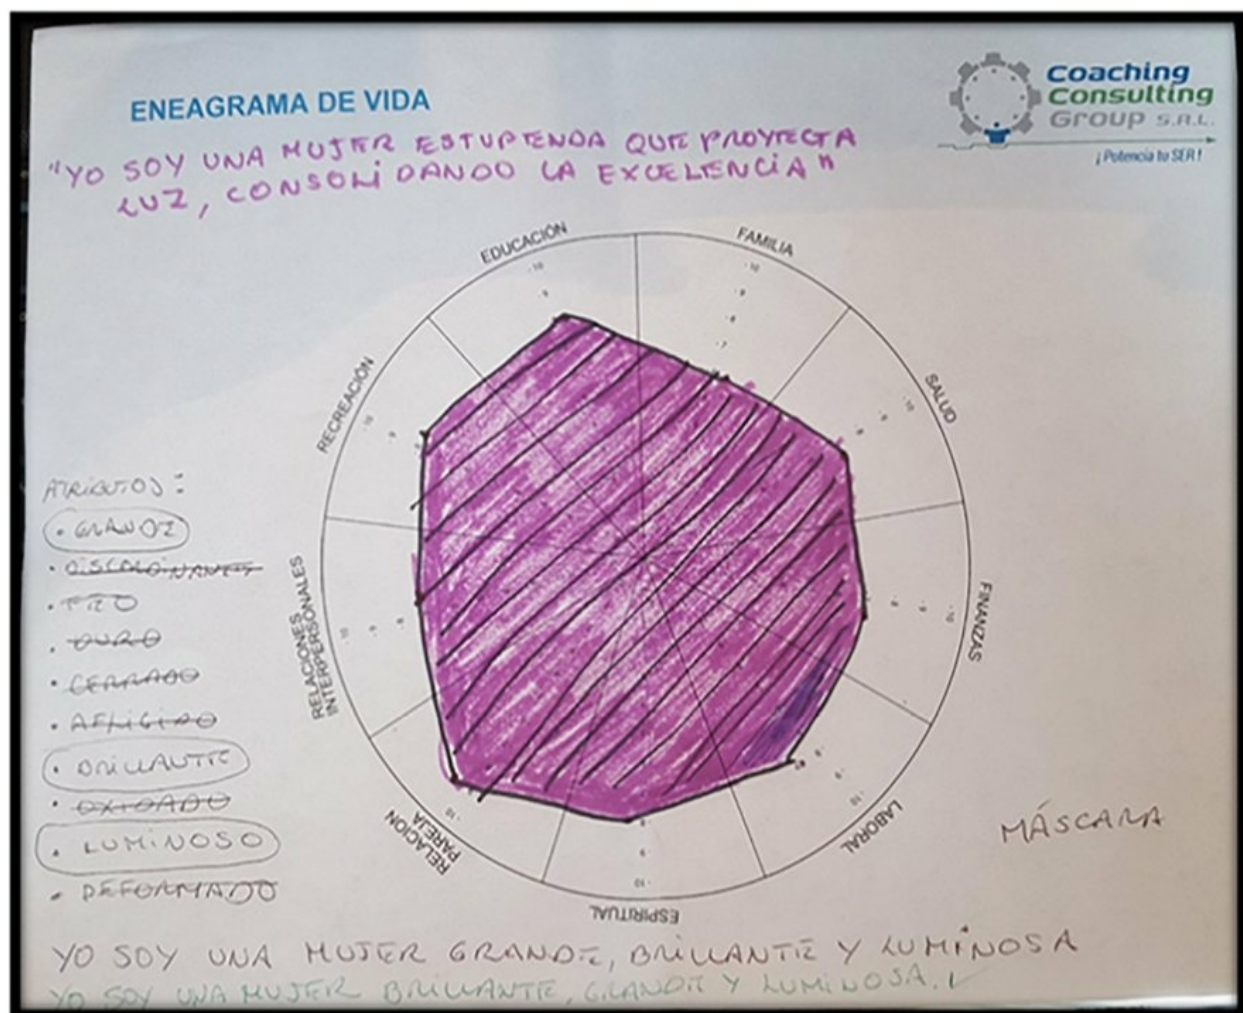 Coaching
Consulting
Group S.R.L.
¡Potencia tu SER!
ENEAGRAMA DE VIDA
"YO SOY UNA MUJER ESTUPENDA QUE PROYECTA
LUZ, CONSOLIDANDO LA EXCELENCIA"
EDUCACIÓN
FAMILIA
SALUD
FINANZAS
LABORAL
ESPIRITUAL
RELACION
PAREJA
RELACIONES
INTERPERSONALES
RECREACIÓN
ATRIBUTOS:
· GRANDE
· FEO
· DURO
· CERRADO
· AFLIGIDO
· BRILLANTE
· OXIDADO
· LUMINOSO
- DEFORMADO
MÁSCARA
YO SOY UNA MUJER GRANDE, BRILLANTE Y LUMINOSA
YO SOY UNA MUJER BRILLANTE, GRANDE Y LUMINOSA.